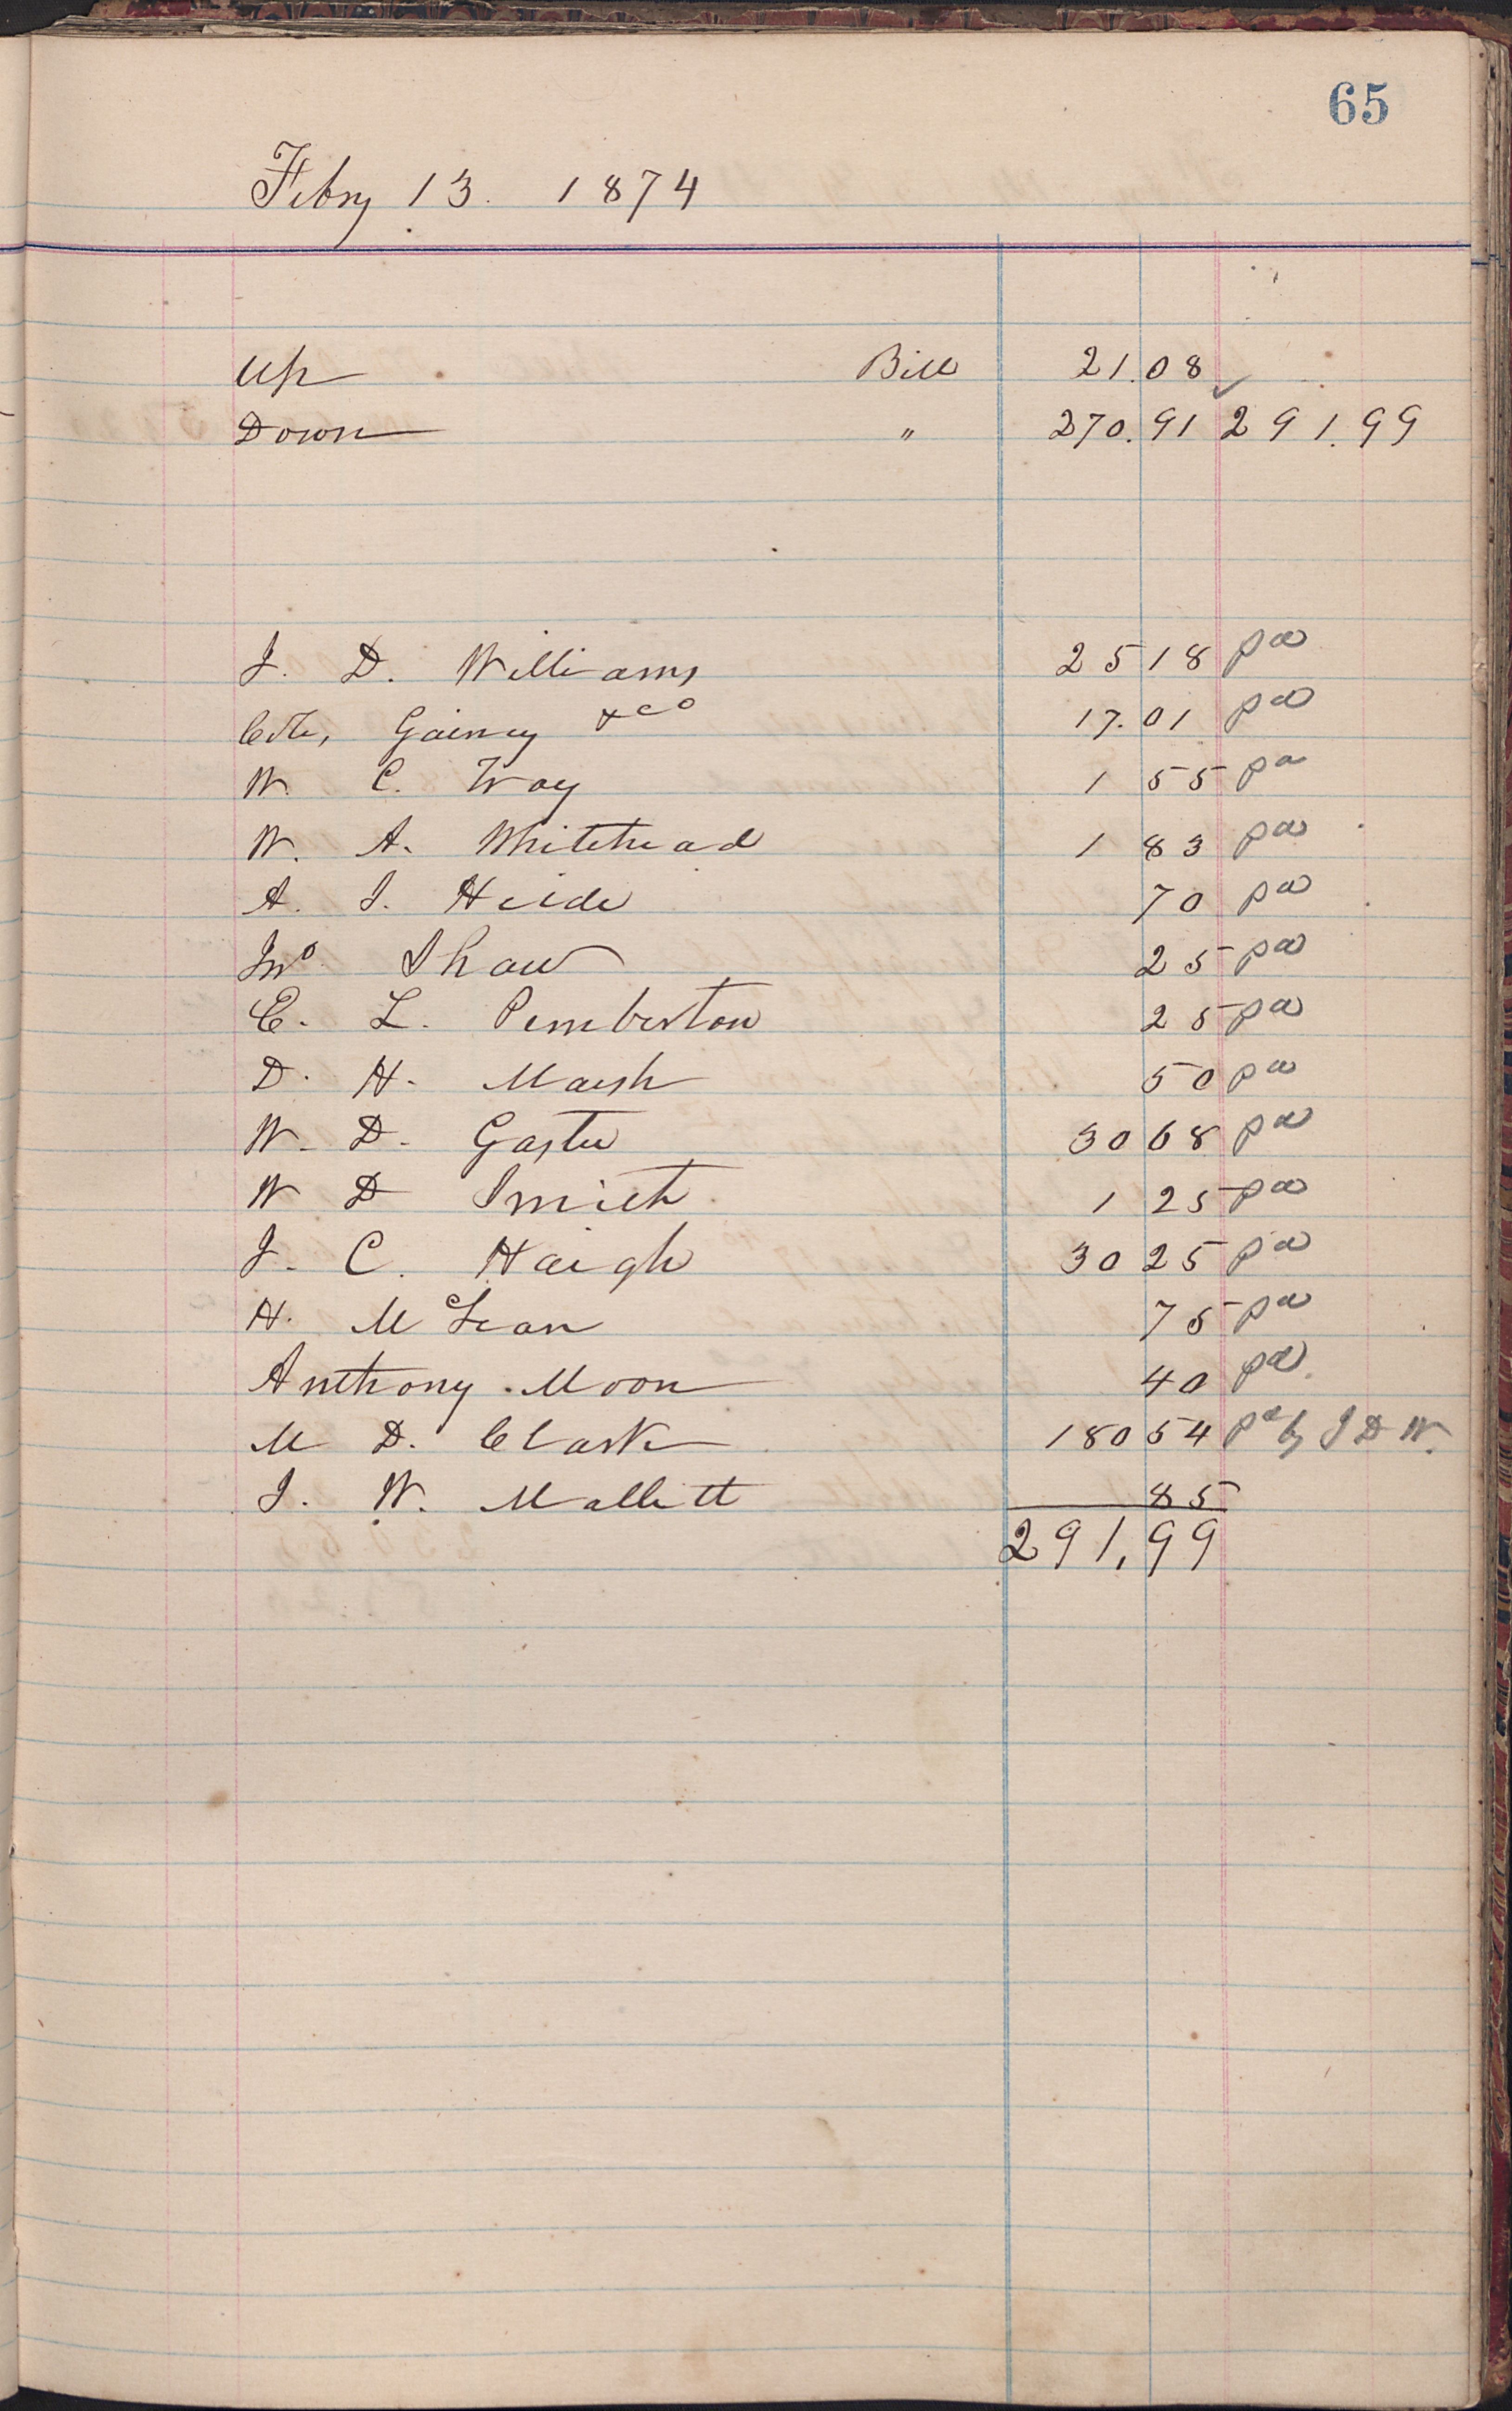 65
Febry 13. 1874
Up Bill 21.08 ✓
Down " 270.91 291.99
J. D. Williams 25 18 pd
Gainey & co 17.01 pd
W. C. Troy 1 55 pd
W. A. Whitehead 1 83 pd
A. J. Heide 70 pd
Jno Shaw 25 pd
E. L. Pemberton 25 pd
D. H. Marsh 50 pd
W. D. Gaster 30 68 pd
W D Smith 1 25 pd
J. C. Haigh 30 25 pd
H. McLean 75 pd
Anthony Moon 40 pd
M D. Clark 180 54 pd by J D W.
J. W. Mallett 85
291,99